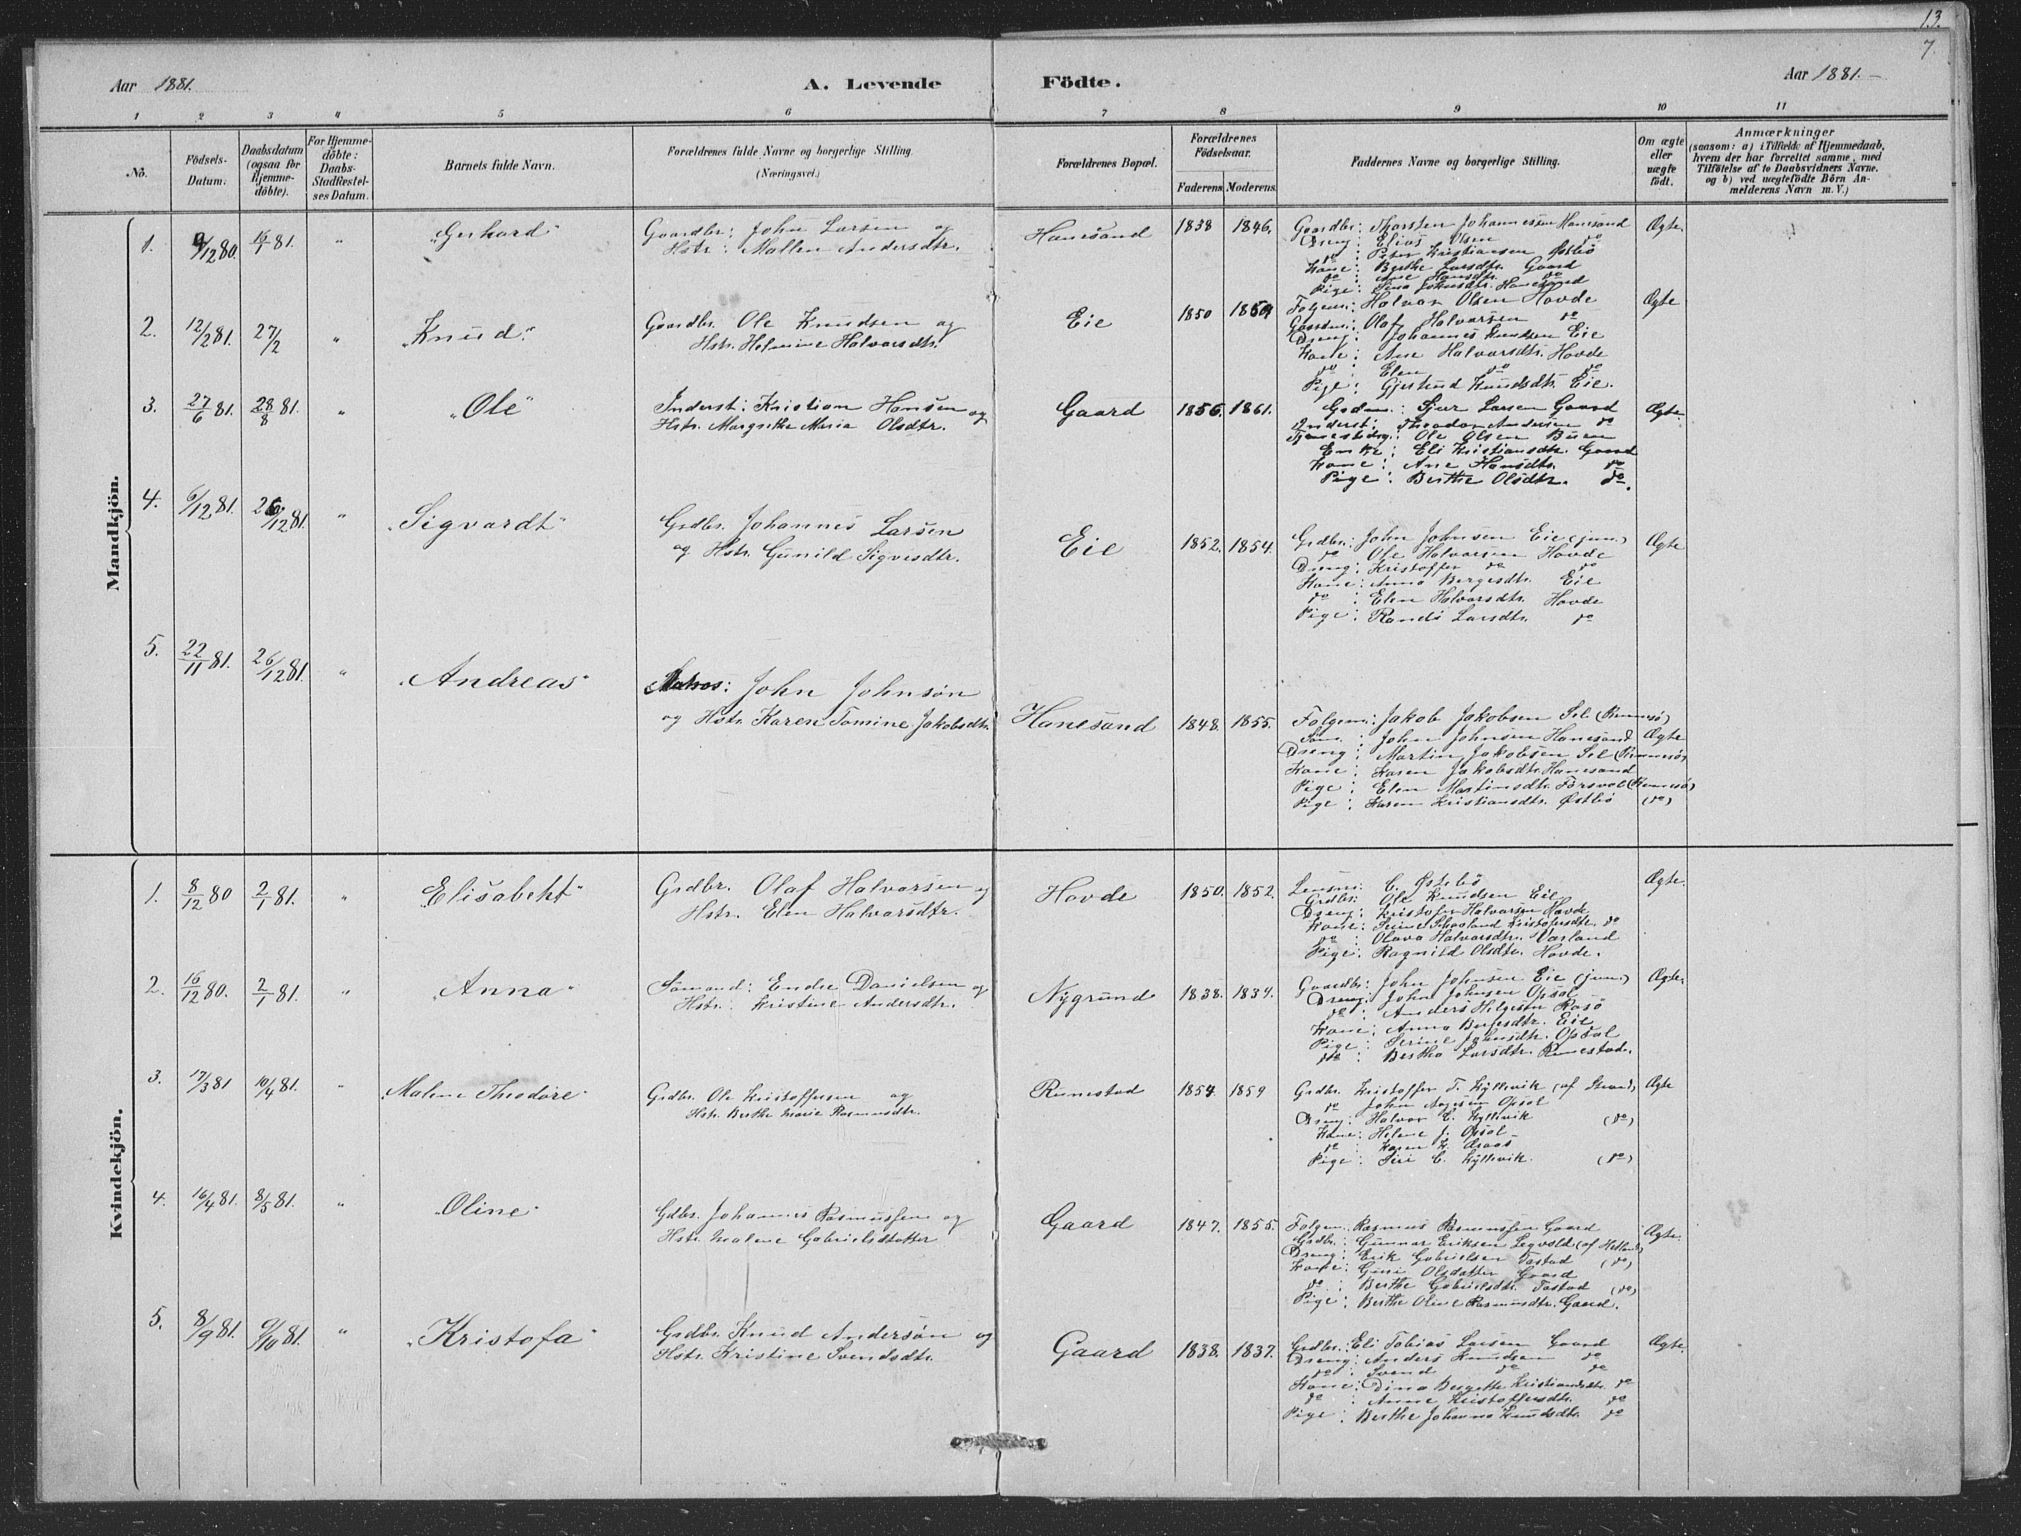 13.
7.
Aar 1881.
A. Levende Födte.
Aar 1881.
1 2 3 4 5 6 7 8 9 10 11
No.
Födsels-
Datum.
Daabsdatum
(ogsaa for
Hjemme-
döbte).
For Hjemme-
döbte:
Daabs-
StadfæstelsesDatum.
Barnets fulde Navn.
Forældrenes fulde Navne og borgerlige Stilling.
(Næringsvei.)
Forældrenes Bopæl.
Forældrenes
Födselsaar.
Faderens Moderens
Faddernes Navne og borgerlige Stilling.
Om ægte
eller
uægte
födt.
Anmærkninger
(saasom: a) i Tilfælde af Hjemmedaab,
hvem der har forrettet samme, med
Tilföielse af to Daabsvidners Navne.
og b) ved uægtefödte Börn An-
melderens Navn m. V.)
Mandkjön.
1. 9/12 80. 16/1 81. " "Gerhard"
Gaardbr: John Larsen og
Hstr: Mallen Andersdtr.
Hanesand 1838 1846.
Gaardbr: Thorsten Johannesen Hanesand
Dreng: Elias Olsen do
do: Peter Kristiansen Østbö
Kone: Berthe Larsdtr. Gaard
do: Ane Hansdtr. do
Pige: Sina Johnsdtr. Hanesand
Ægte.
2. 12/2 81. 27/2 " "Knud."
Gaardbr. Ole Knudsen og
Hstr. Helmine Halvorsdtr.
Eie 1850 1859
Folgem: Halvor Olsen Hovde
Gaardm: Olaf Halvorsen do
Dreng: Johannes Knudsen Eie
Kone: Ane Halvorsdtr. Hovde
do: Elen do do
Pige: Gjertrud Knudsdtr. Eie.
Ægte
3. 27/6 81. 28/8 81. " "Ole"
Inderst: Kristian Hansen og
Hstr. Margrethe Maria Olsdtr.
Gaard 1856. 1861.
Gsdm: Sjur Larsen Gaard
Inderst: Theodor Andersen do
Tjenestedrg: Ole Olsen Buen
Enke: Eli Kristiansdtr. Gaard
Kone: Ane Hansdtr. do
Pige: Berthe Olsdtr. do.
Ægte.
4. 6/12 81. 26/12 81. " "Sigvardt"
Grdbr. Johannes Larsen
og Hstr. Gunild Sigvesdtr.
Eie 1852. 1854.
Grdbr: John Johnsen Eie (jun.)
do: Ole Halvorsen Hovde
Dreng: Kristoffer do do
Kone: Anna Bergesdtr. Eie
do: Elen Halvorsdtr. Hovde
Pige: Randi Larsdtr. do
Ægte
5. 22/11 81. 26/12 81. " "Andreas"
Matros: John Johnsön
og Hstr Karen Tomine Jakobsdtr.
Hanesand 1848. 1855.
Folgem: Jakob Jakobsen Sel (Rennesö)
Søm.: John Johnsen Hanesand
Dreng: Martin Jakobsen Sel (Rennesö)
Kone: Karen Jakobsdtr. Hanesand
Pige: Elen Martinsdtr. Forsvol (Rennesö)
Pige: Karen Kristiansdtr. Østbö (do)
Ægte
Kvindekjön.
1. 8/12 80 2/1 81. " "Elisabeht"
Grdbr. Olaf Halvorsen og
Hstr. Elen Halvorsdtr.
Hovde 1850. 1852.
Lensm: C. Østebö
Grdbr: Ole Knudsen Eie
Dreng: Kristofer Halvorsen Hovde
Kone: Serine Kristofersdtr. do
do: Olava Halvorsdtr. Varland
Pige: Ragnild Olsdtr. Hovde.
Ægte.
2. 16/12 80. 2/1 81. " "Anna"
Sömand: Endre Danielsen og
Hstr. Kristine Andersdtr.
Nygrund 1838. 1834.
Gaardbr: John Johnsen Eie (jun.)
Dreng: John Johnsen Opsal
do: Anders Helgesen Rosö
Kone: Anna Bergesdtr. Eie
Pige: Serine Johnsdtr. Opsal
do: Bertha Larsdtr. Runestad.
Ægte.
3. 17/3 81 10/4 81. " Malene Theodore"
Grdbr. Ole Kristoffersen og
Hstr. Berthe Marie Rasmusdtr.
Runestad 1854. 1859
Grdbr. Kristoffer T. Kyllevik (af Strand)
do John Aagesen Opsal
Dreng: Halvor C. Kyllevik (do)
Kone: Helene J. Opsal
do: Karen K. Araas
Pige: Siri C. Kyllevik. (do)
Ægte
4. 16/4 81. 8/5 81. " "Oline"
Gdbr. Johannes Rasmussen og
Hstr. Malene Gabrielsdatter
Gaard 1847. 1855.
Folgem. Rasmus Rasmussen Gaard
Grdbr: Gunnar Eriksen Legvold (af Hetland)
Dreng: Erik Gabrielsen Tastad (do)
Kone: Guri Olsdatter Gaard
do: Berthe Gabrielsdtr. Tastad (do)
Pige: Berthe Oline Rasmusdtr. Gaard.
Ægte.
5. 8/9 81. 9/10 81. " "Kristofa"
Grdbr. Knud Andersön og
Hstr. Kristine Svendsdtr.
Gaard 1838. 1837.
Grdbr: Eli Tobias Larsen Gaard
Dreng: Anders Knudsen do
do: Svend do do
Kone: Dina Bergette Kristiansdtr. do
do: Anne Kristoffersdtr. do
Pige: Berthe Johanna Knudsdtr. do
Ægte.